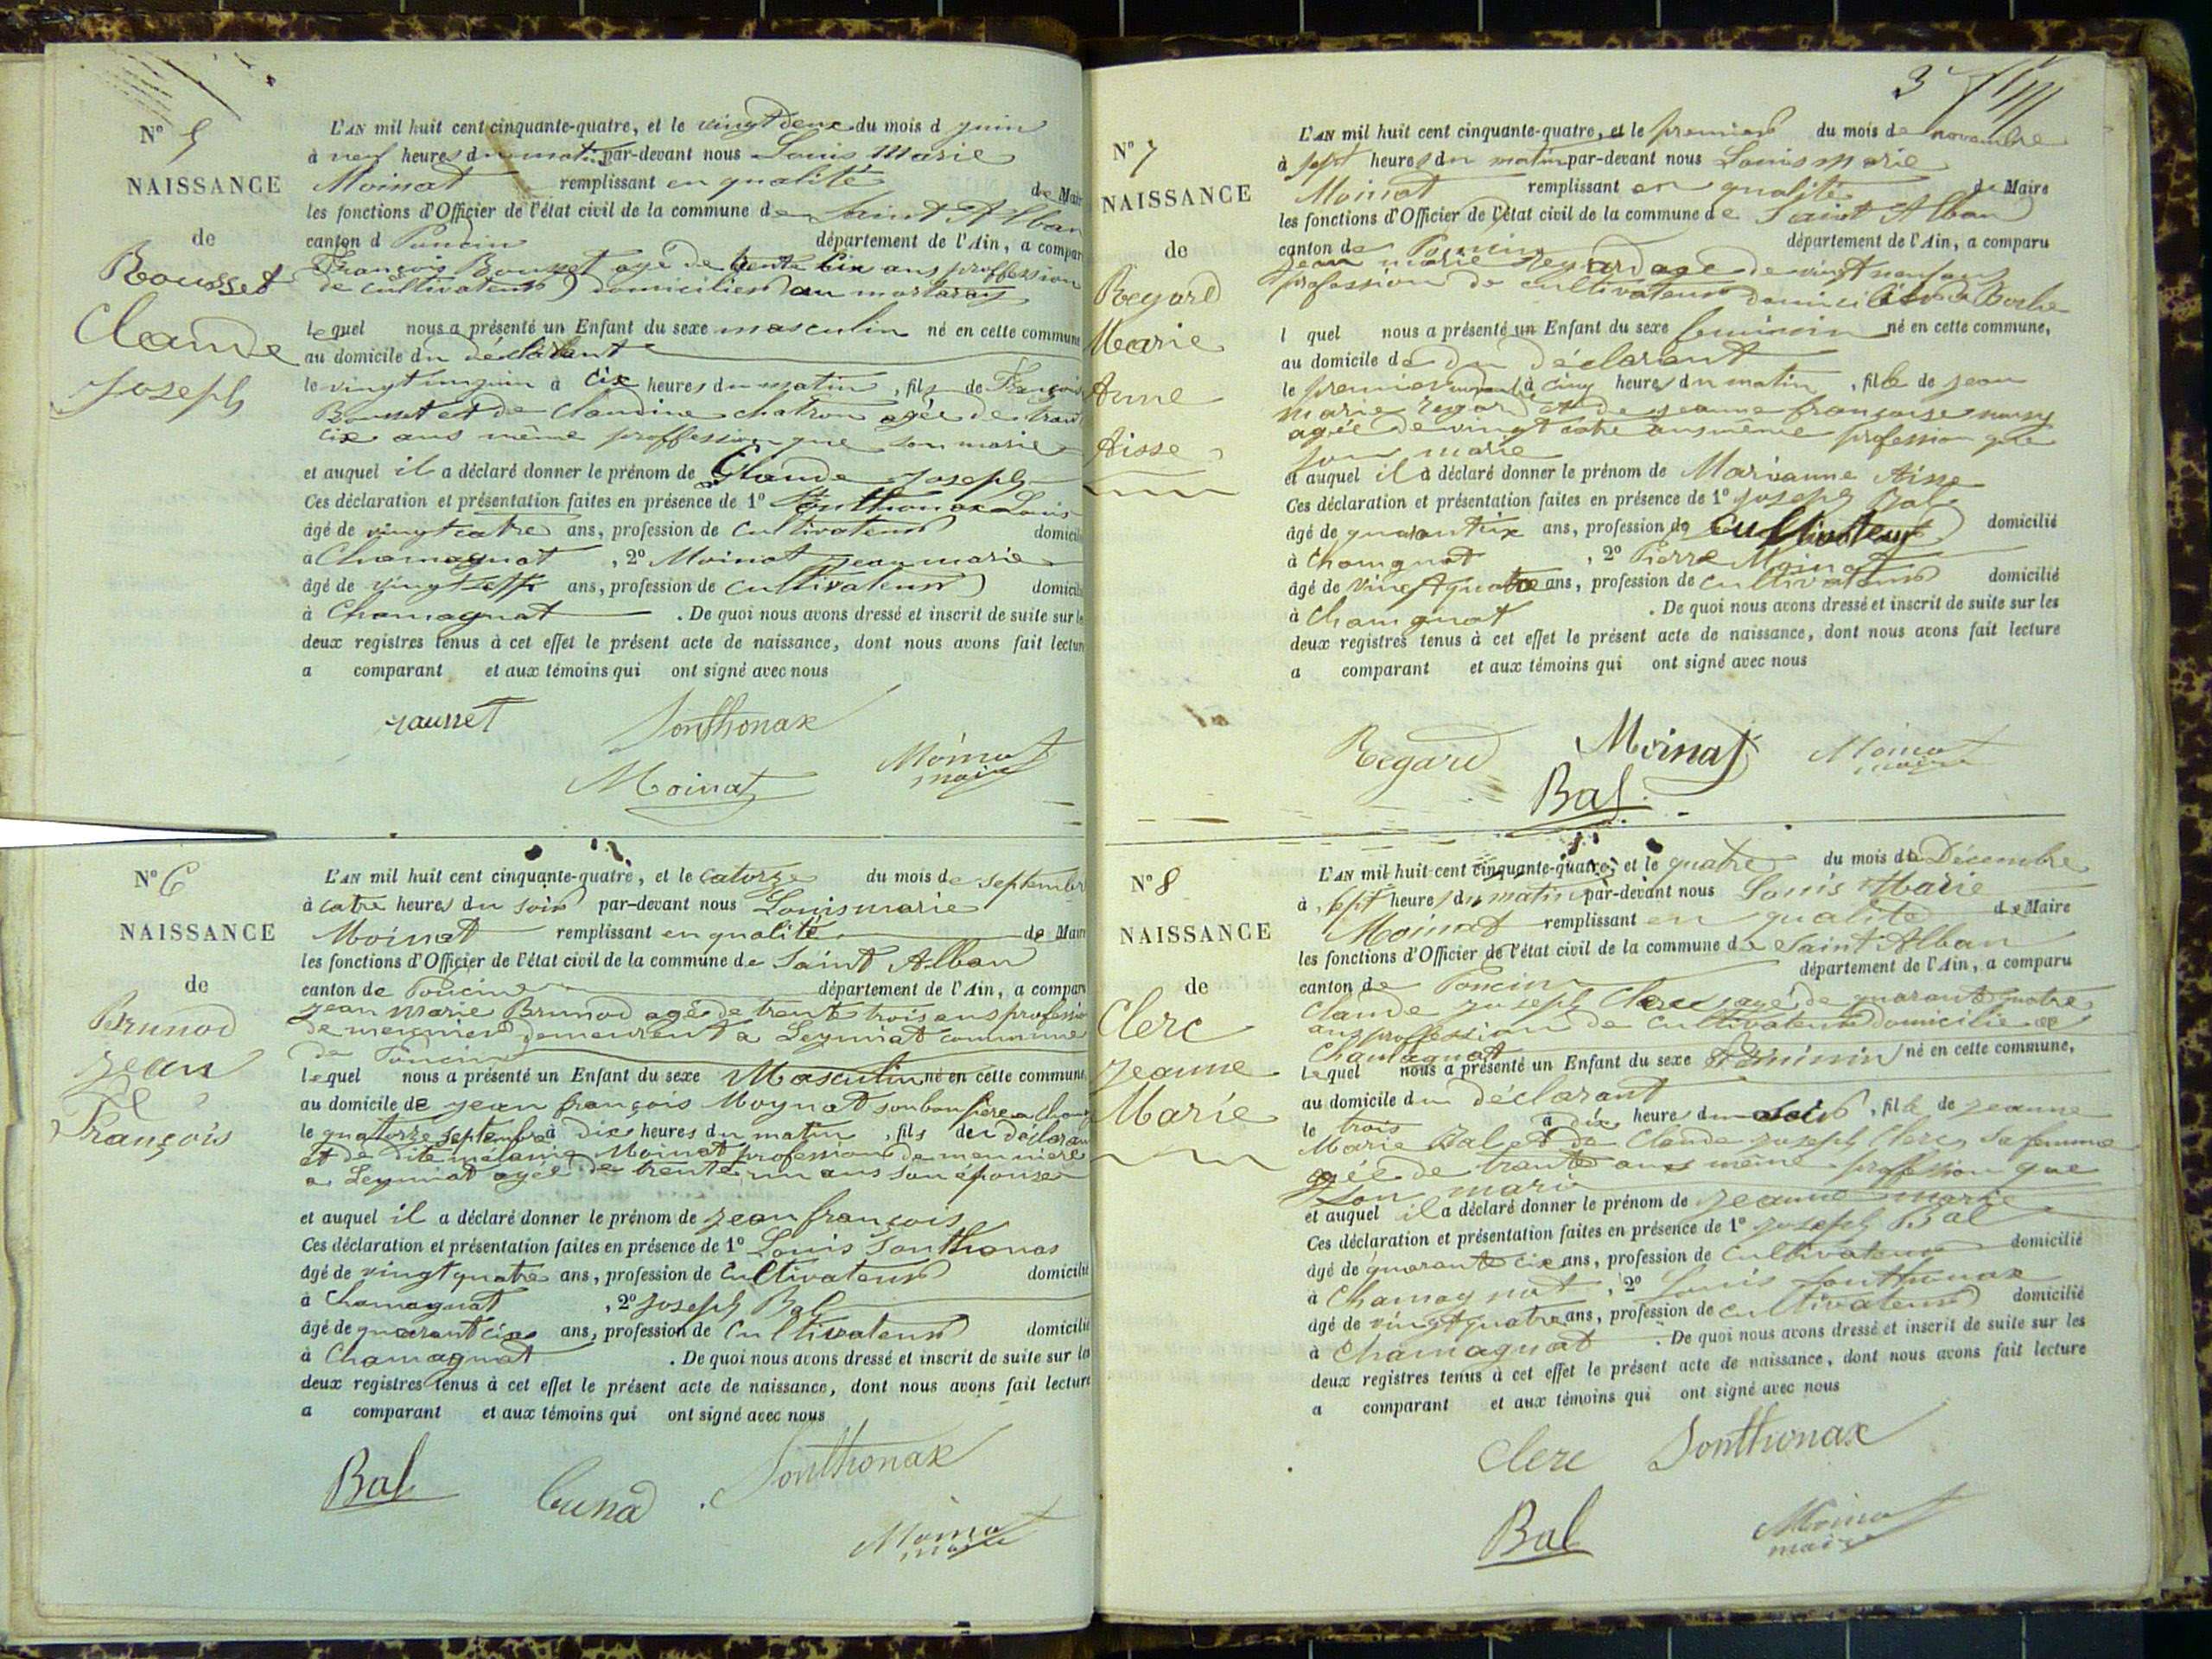 N° 5
NAISSANCE
de
Rousset
Claude
Joseph
L'AN mil huit cent cinquante-quatre, et le vingt deux du mois d juin
à neuf heures du matin par-devant nous Louis Marie
Moinat remplissant en qualité de Mair
les fonctions d'Officier de l'état civil de la commune de Saint Alban
canton d Poncin département de l'Ain, a compar
François Rousset agé de trente six ans proffession
de cultivateur domicilier au mortaray
lequel nous a présenté un Enfant du sexe masculin né en cette commune
au domicile du déclarant
le vingt un juin à cix heures du matin, fils de François
Rousset et de Claudine chatron agée de trant
cix ans même proffession que son marie
et auquel il a déclaré donner le prénom de Claude Joseph
Ces déclaration et présentation faites en présence de 1° Sonthonax Louis
âgé de vingt catre ans, profession de cultivateur domicili
a Chamagnat, 2° Moinat jean marie
âgé de vingt sept ans, profession de cultivateur domicili
à Chamagnat. De quoi nous avons dressé et inscrit de suite sur le
deux registres tenus à cet effet le présent acte de naissance, dont nous avons fait lectur
a comparant et aux témoins qui ont signé avec nous
rausset Sonthonax
Moinat Moinat
maire
N° 6
NAISSANCE
de
Brunod
Jean
François
L'AN mil huit cent cinquante-quatre, et le catorze du mois de septembr
à catre heures du soir par-devant nous Louis marie
Moinat remplissant en qualité de Mair
les fonctions d'Officier de l'état civil de la commune de Saint Alban
canton de Poncin département de l'Ain, a compar
jean Marie Brunod agé de trente trois ans professio
de meunier demeurent a Leymiat commune
de Poncin
lequel nous a présenté un Enfant du sexe Masculin né en cette commune
au domicile de jean françois Moynat son bau père a
le quatorze septembre à dix heures du matin, fils de déclaran
et de dite mélanie Moinat profession de meuniere
a Leymiat agée de trente un ans son épouse
et auquel il a déclaré donner le prénom de jean françois
Ces déclaration et présentation faites en présence de 1° Louis Sonthonas
âgé de vingt quatre ans, profession de cultivateur domicilié
à Chamagnat, 2° joseph Bal
âgé de quarant cix ans, profession de cultivateur domicilié
à Chamagnat. De quoi nous avons dressé et inscrit de suite sur les
deux registres tenus à cet effet le présent acte de naissance, dont nous avons fait lecture
a comparant et aux témoins qui ont signé avec nous
Bal Sonthonax
Moinat
maire
3
N° 7
NAISSANCE
de
Regard
Marie
Anne
Aisse
L'AN mil huit cent cinquante-quatre, et le premier du mois de novembre
à sept heures du matin par-devant nous Louis marie
Moinat remplissant en qualité de Maire
les fonctions d'Officier de l'état civil de la commune de Saint Alban
canton de Poncin département de l'Ain, a comparu
jean marie regard agé de vingt neuf ans
profession de cultivateur domicilier
l quel nous a présenté un Enfant du sexe feminin né en cette commune,
au domicile de du déclarant
le premier à cinq heures du matin, fille de jean
marie regard et de jeanne françoise
agée de vingt catre ans même profession que
son marie
et auquel il a déclaré donner le prénom de Marianne Aisse
Ces déclaration et présentation faites en présence de 1° joseph Bal
âgé de quarantcix ans, profession de cultivateur domicilié
à Chamgnat, 2° Pierre Moinat
âgé de vingt quatre ans, profession de cultivateur domicilié
à Chamgnat. De quoi nous avons dressé et inscrit de suite sur les
deux registres tenus à cet effet le présent acte de naissance, dont nous avons fait lecture
a comparant et aux témoins qui ont signé avec nous
Regard Moinat Moinat
maire
Bal
N° 8
NAISSANCE
de
Clerc
Jeanne
Marie
L'AN mil huit cent cinquante-quatre, et le quatre du mois de Décembre
à sept heures du matin par-devant nous Louis Marie
Moinat remplissant en qualité de Maire
les fonctions d'Officier de l'état civil de la commune de Saint Alban
canton de Poncin département de l'Ain, a comparu
Claude joseph Clerc agé de quarant quatre
ans proffession de cultivateur domicilie a
Chamagnat
lequel nous a présenté un Enfant du sexe Féminin né en cette commune,
au domicile du déclarant
le trois à dix heures du soir, fille de jeanne
Marie Bal et de Claude joseph Clerc sa femme
agée de trante ans même proffesion que
son marie
et auquel il a déclaré donner le prénom de jeanne marie
Ces déclaration et présentation faites en présence de 1° joseph Bal
âgé de quarante cix ans, profession de cultivateur domicilié
à Chamagnat, 2° Louis Sonthonax
âgé de vingt quatre ans, profession de cultivateur domicilié
à Chamagnat. De quoi nous avons dressé et inscrit de suite sur les
deux registres tenus à cet effet le présent acte de naissance, dont nous avons fait lecture
a comparant et aux témoins qui ont signé avec nous
Clerc Sonthonax
Bal Moinat
maire